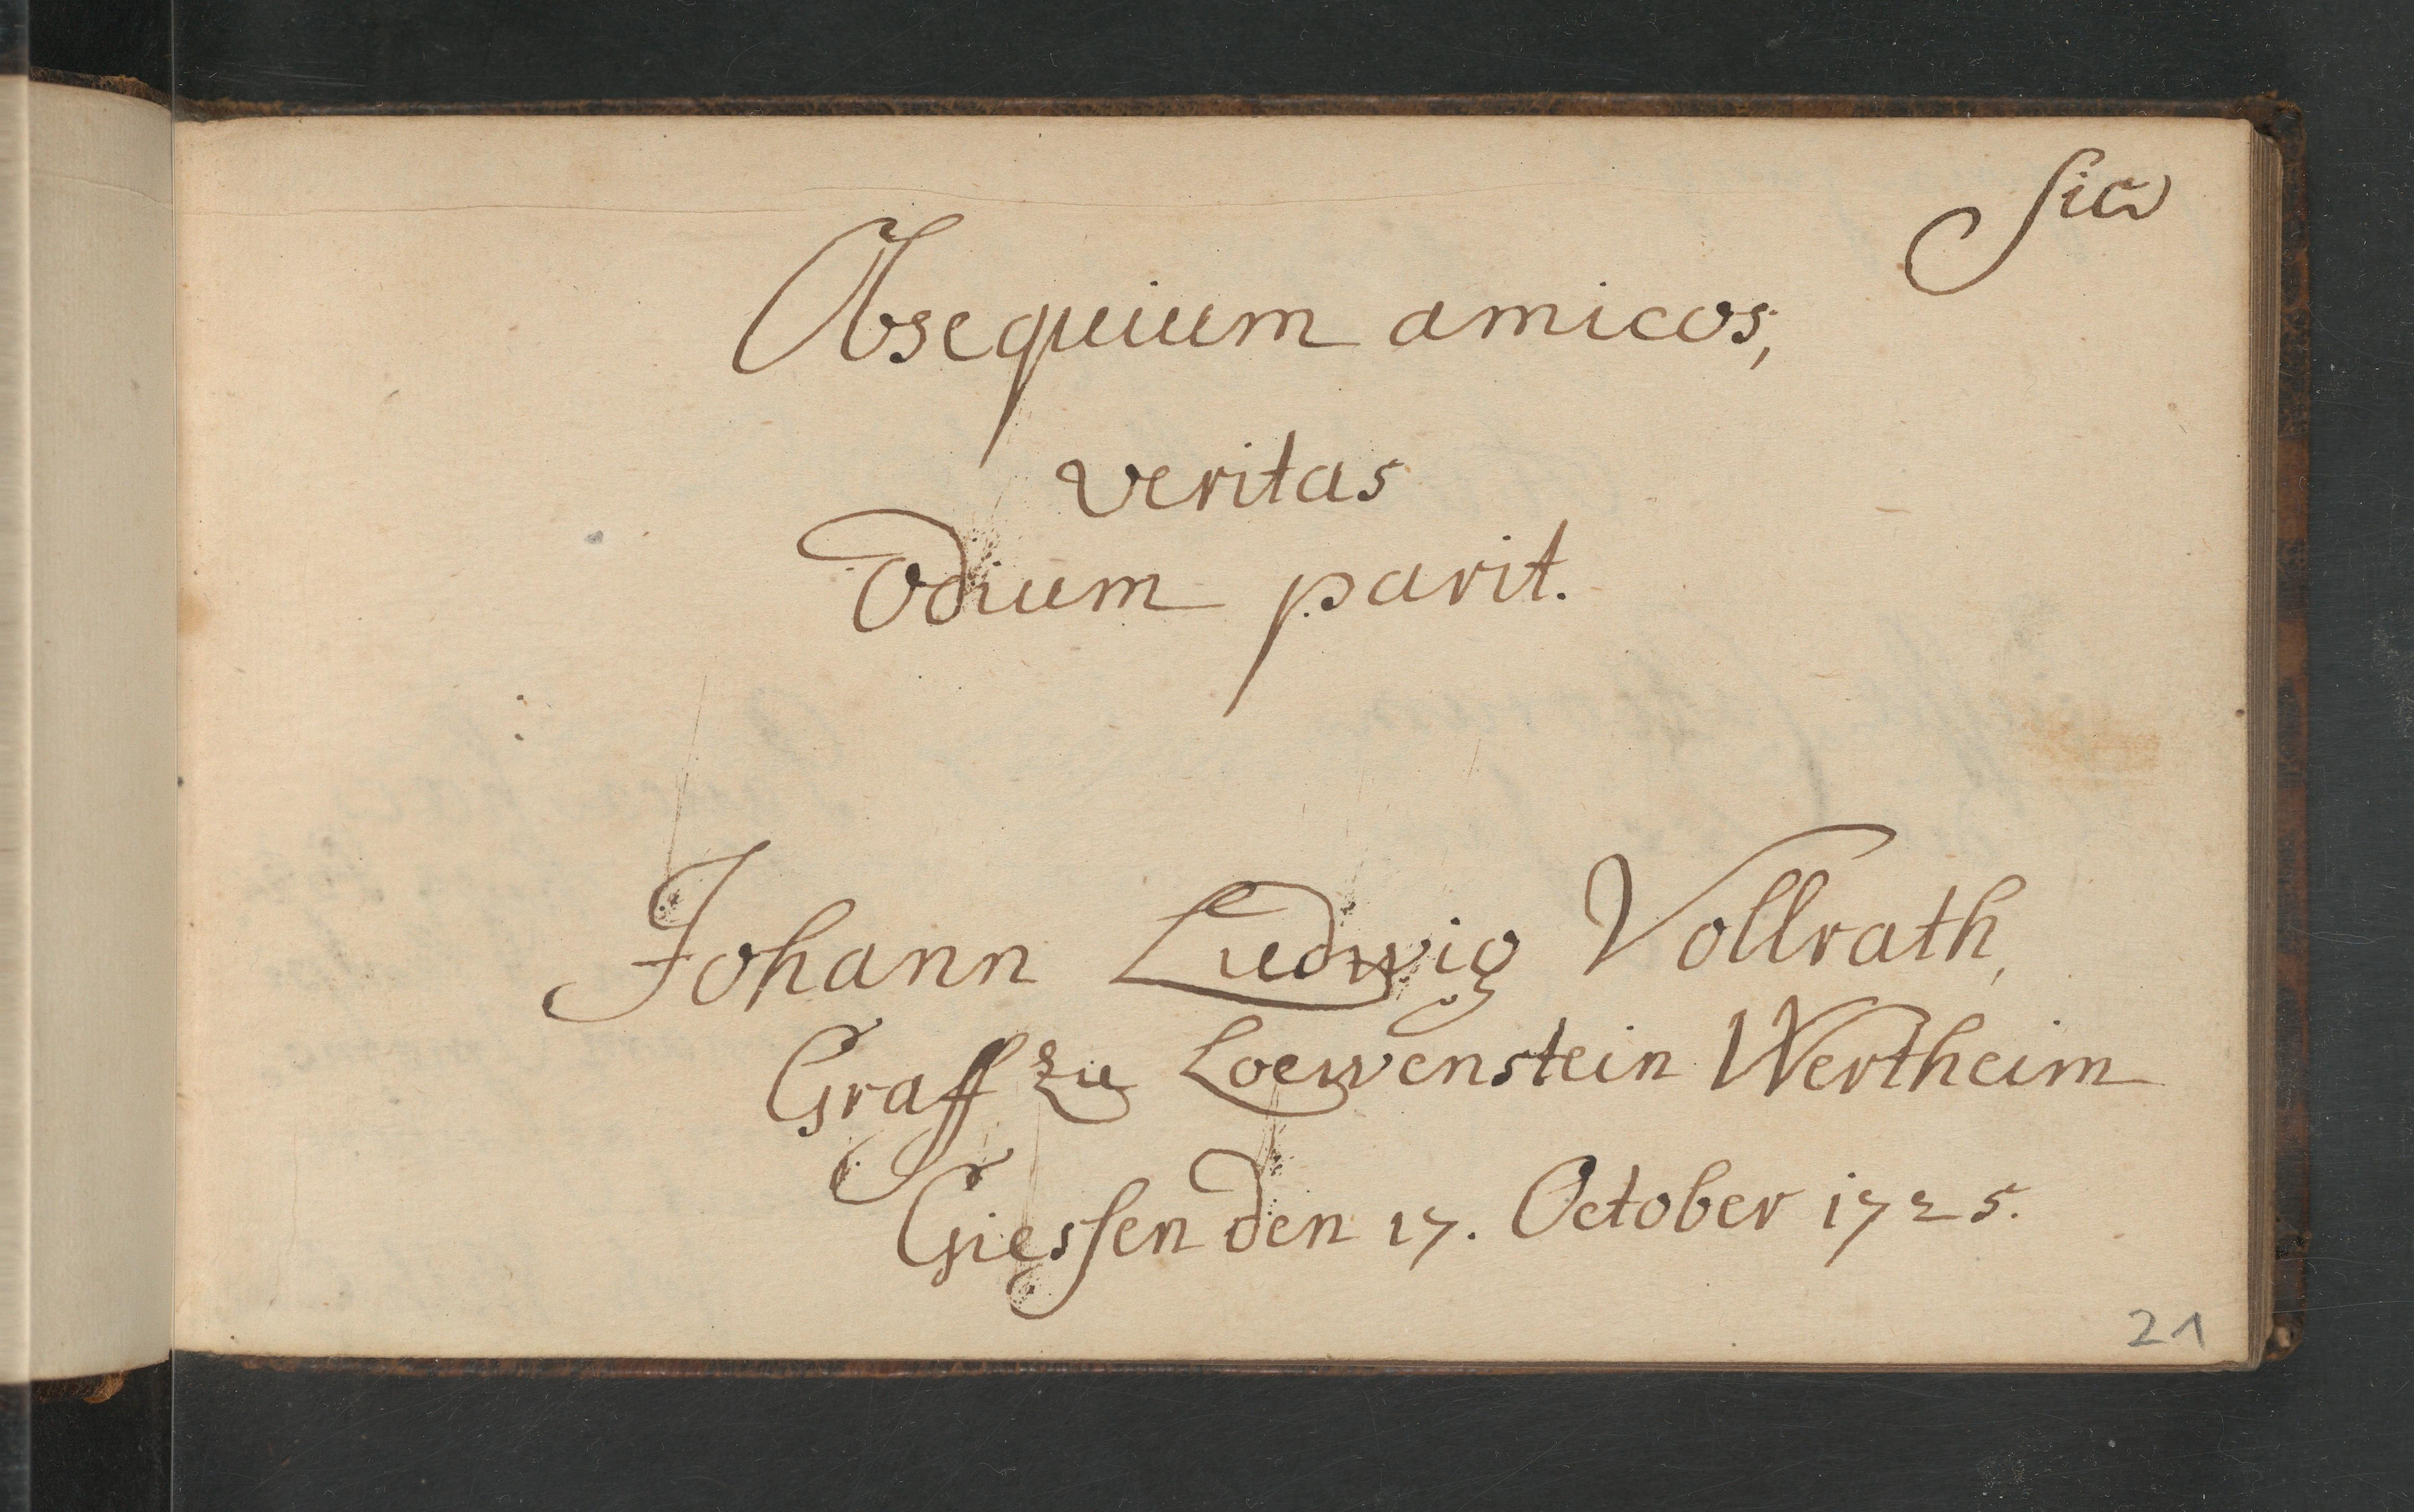 Sic
Obsequium amicos,
veritas
odium parit.
Johann Ludwig Vollrath,
Graff zu Loewenstein Wertheim
Giessen den 17. October 1725.
21